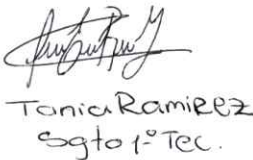 Tania Ramirez
Sgto 1º Tec.